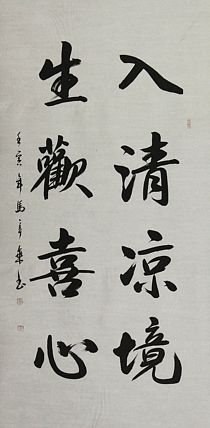 入清凉境
生歡喜心
壬寅年馬